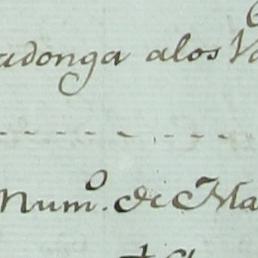 adonga alos
Num.º de Ma